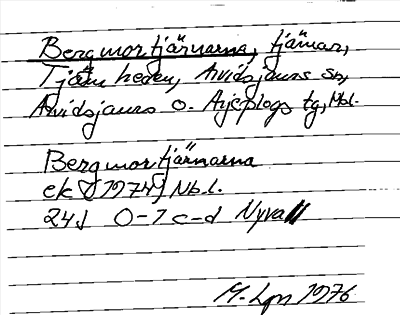 Bergmortjärnarna, tjärnar,
Tjärnheden, Arvidsjaurs sn,
Arvidsjaurs o. Arjeplogs tg, Nbl.
Bergmortjärnarna
ek (1974) Nb.l.
24J 0-1 c-d Nyvall
M. Lgn 1976